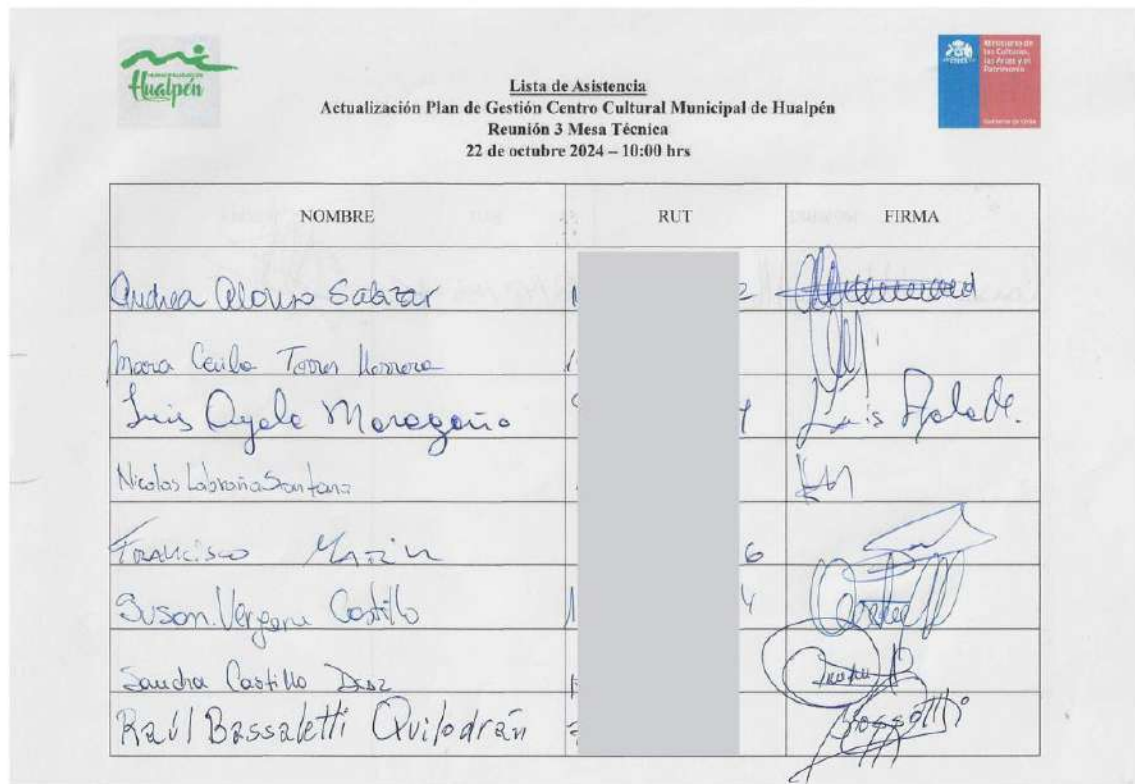 MUNICIPALIDAD DE
Hualpén
Ministerio de
las Culturas,
las Artes y el
Patrimonio
Gobierno de Chile
Lista de Asistencia
Actualización Plan de Gestión Centro Cultural Municipal de Hualpén
Reunión 3 Mesa Técnica
22 de octubre 2024 – 10:00 hrs
NOMBRE RUT FIRMA
Andrea Alonso Salazar 2
Torres Herrera
Luis Ayala Luis
Nicolas Labraña Santana
Francisco 6
Susan Vergara Castillo 4
Sandra Castillo Diaz
Raúl Bassaletti Quilodrán